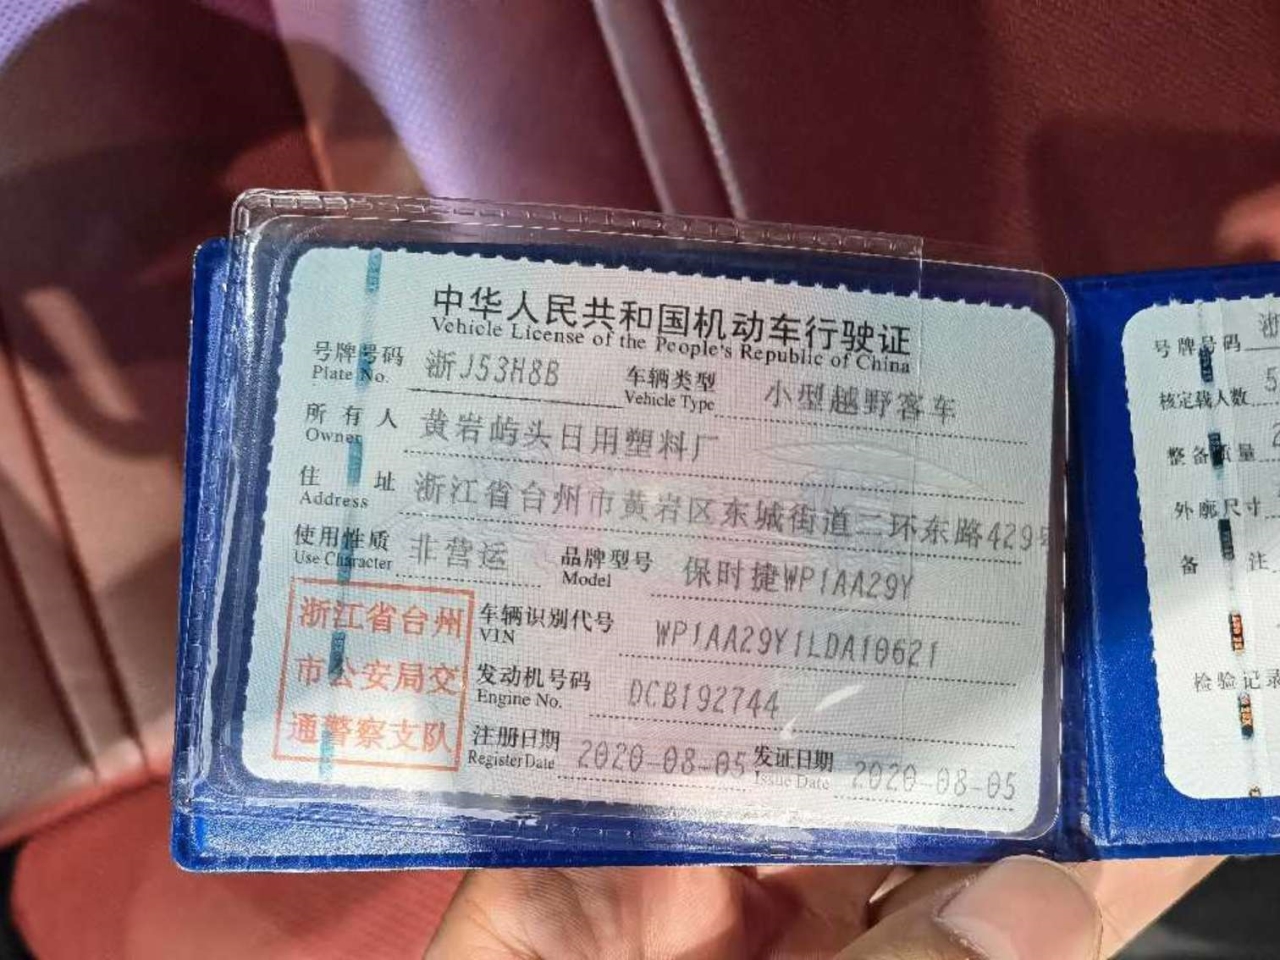 中华人民共和国机动车行驶证
Vehicle License of the People's Republic of China
号牌号码 浙J53H8B 车辆类型 小型越野客车
Plate No. Vehicle Type
所有人 黄岩屿头日用塑料厂
Owner
住址 浙江省台州市黄岩区东城街道二环东路429号
Address
使用性质 非营运 品牌型号 保时捷WP1AA29Y
Use Character Model
车辆识别代号 WP1AA29Y1LDA10621
VIN
发动机号码 DCB192744
Engine No.
注册日期 2020-08-05 发证日期 2020-08-05
Register Date Issue Date
浙江省台州
市公安局交
通警察支队
号牌号码 浙
核定载人数 5
整备质量 2
外廓尺寸
备注
检验记录